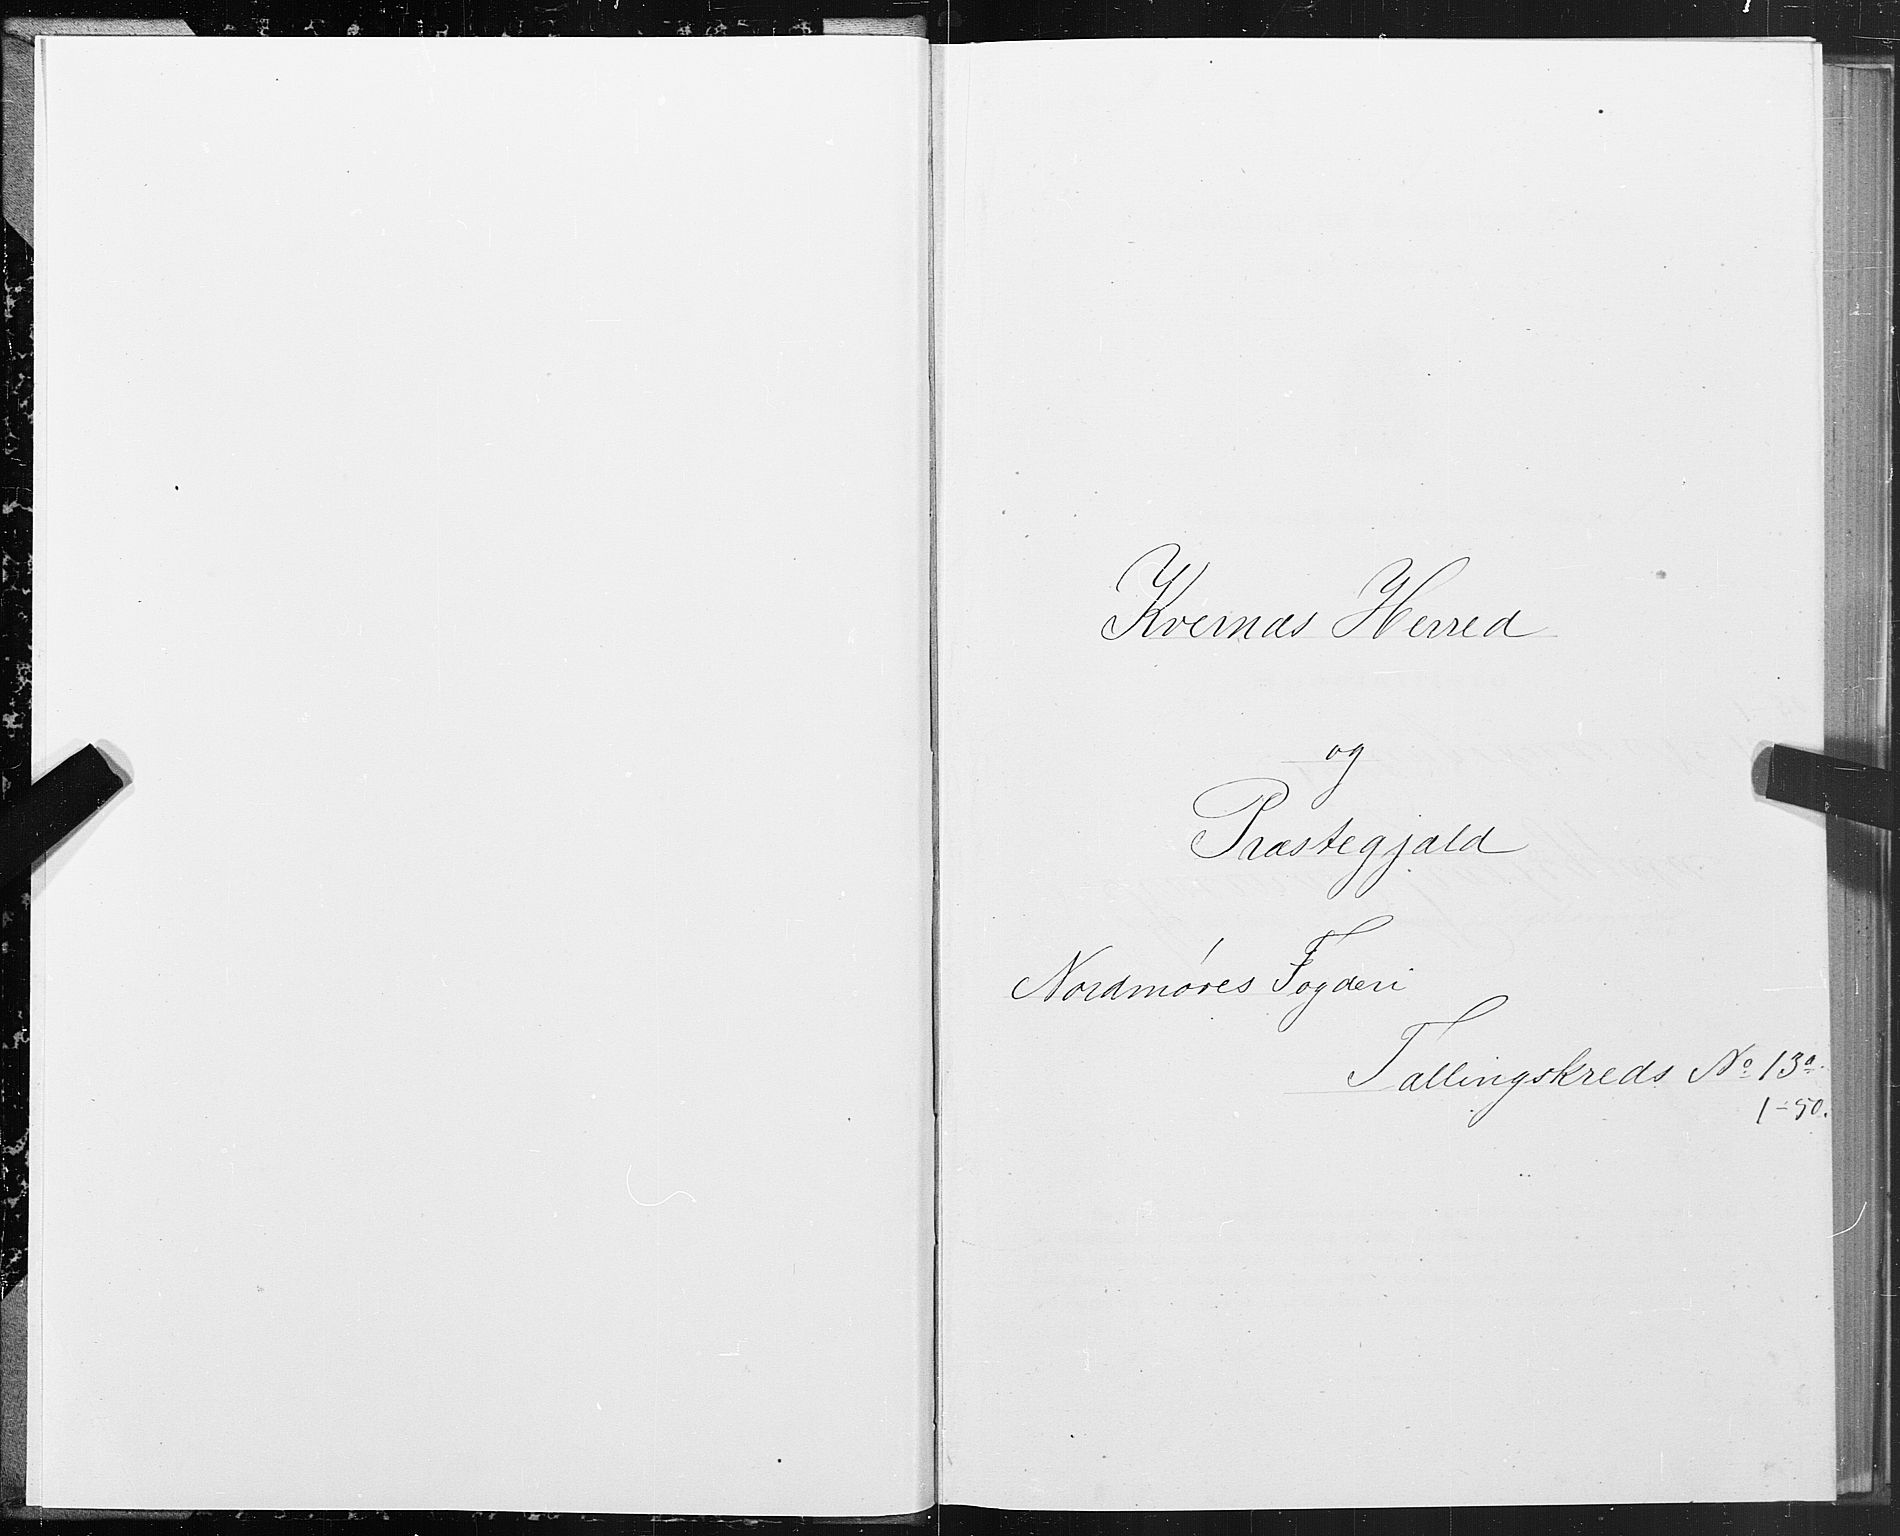 Kvernæs Herred
og
Præstegjæld
Nordmøres Fogderi
Tællingskreds No 13a.
1-50.